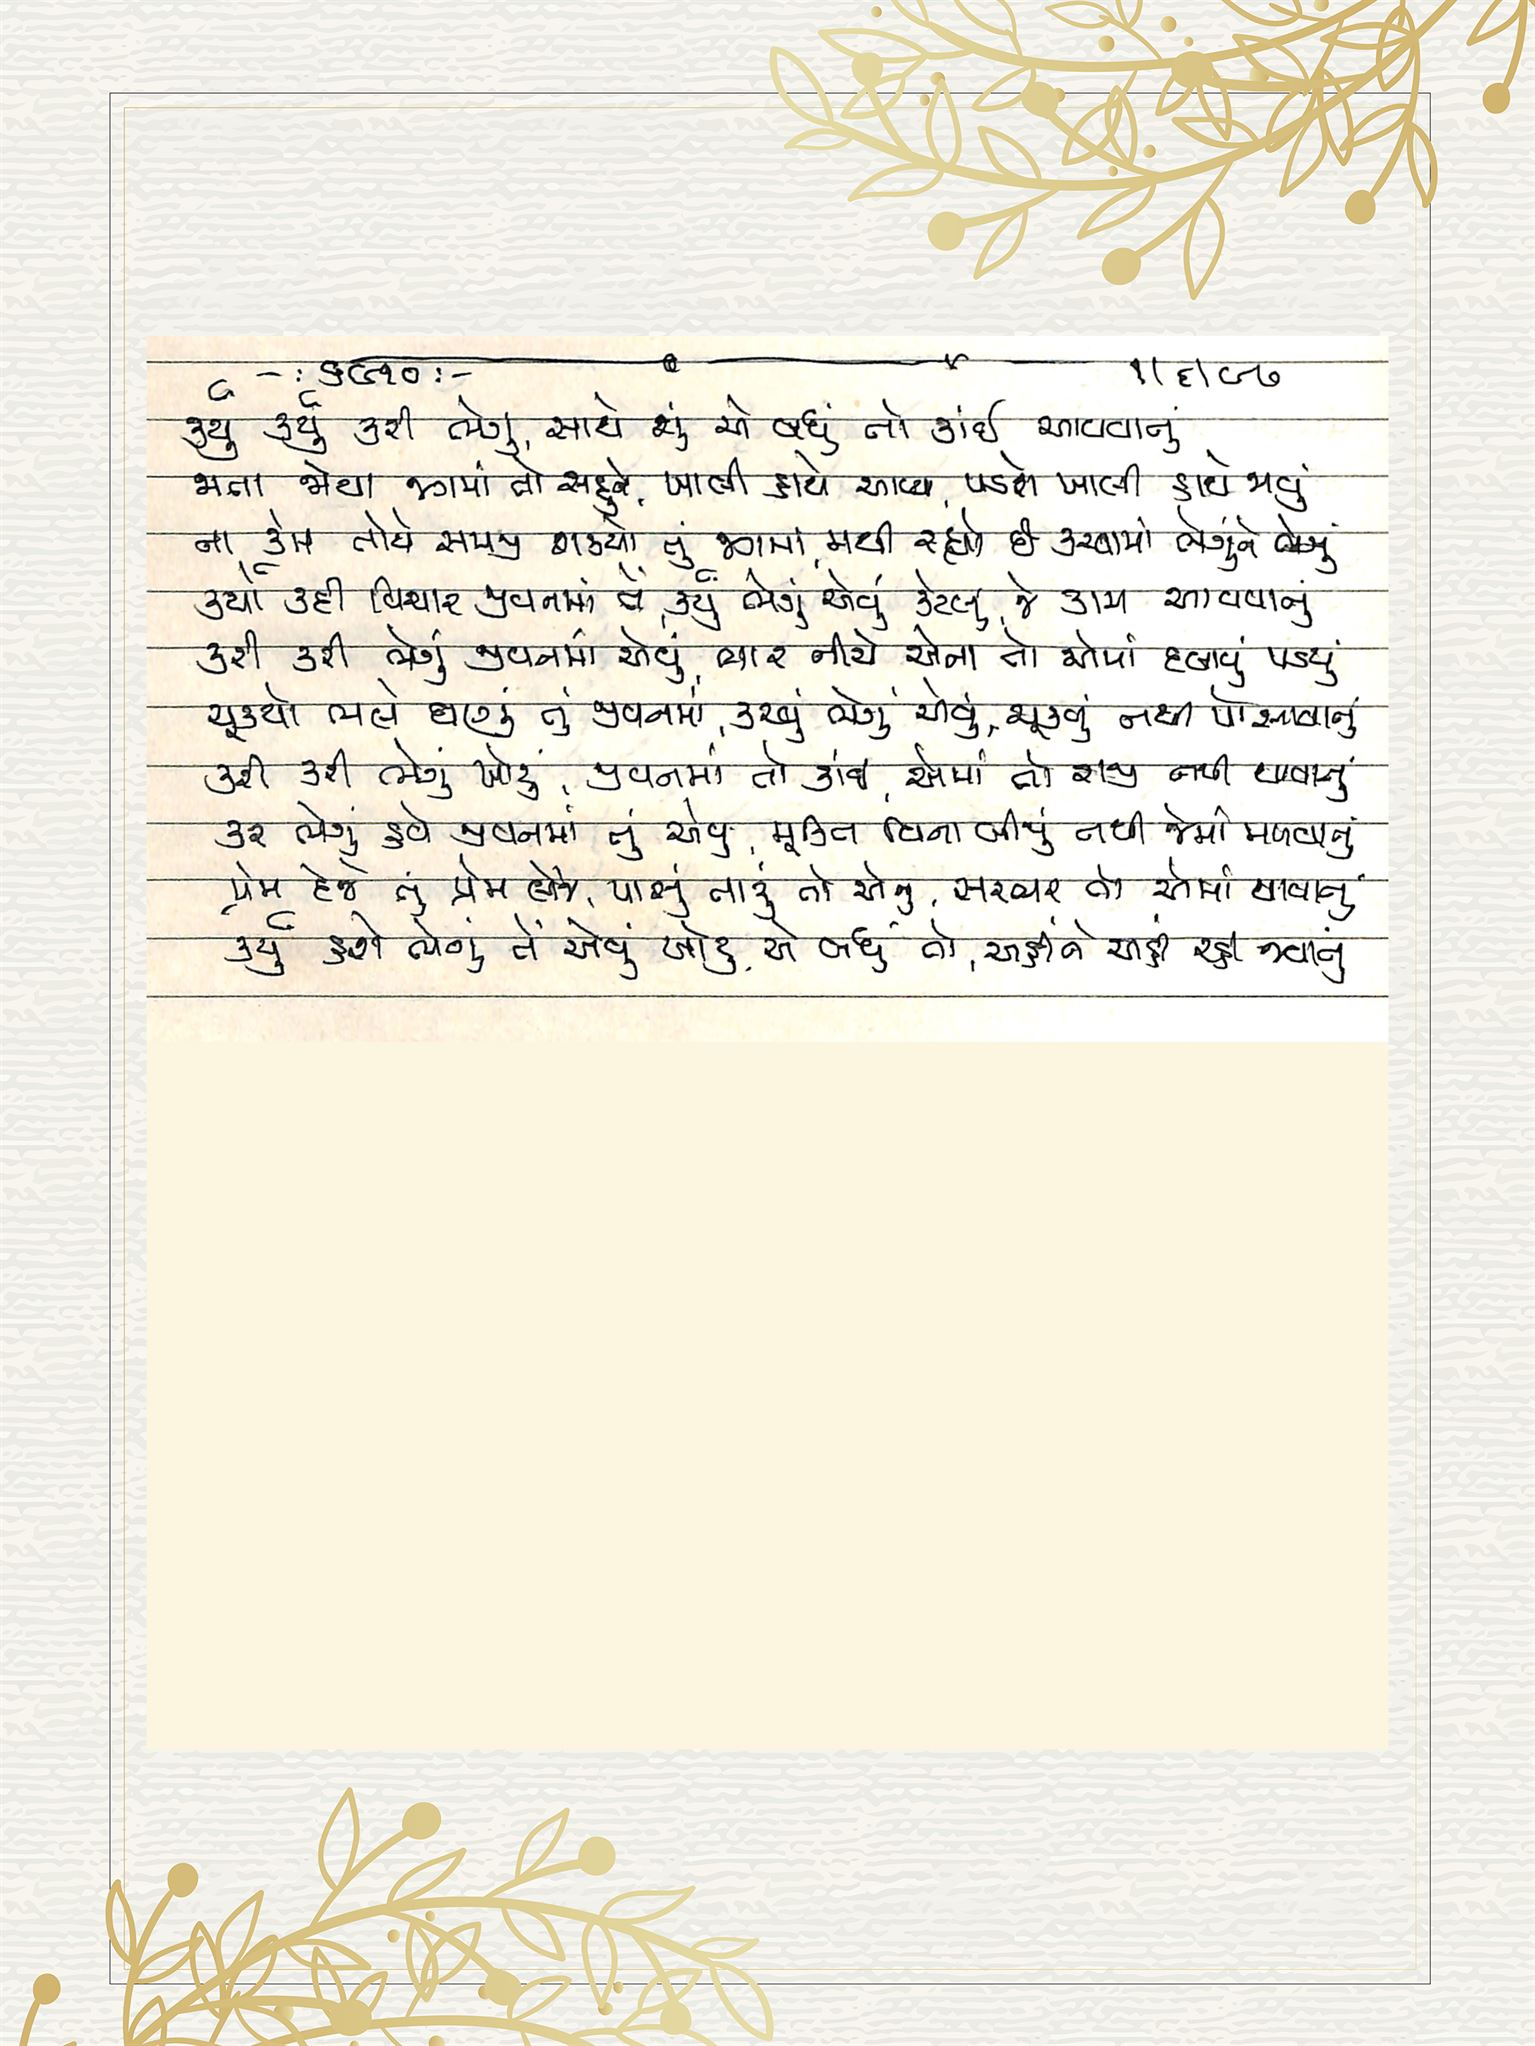 -: ૬૮૧૦ :- ૧/૬/૯૭
કર્યું કર્યું કરી ભેગું, સાથે શું એ બધું તો કાંઈ આવવાનું
જાતા જોયા જગમાં તો સહુને, ખાલી હાથે આવ્યા, પડશે ખાલી હાથે જાવું
ના કેમ તોયે સમજી શક્યો તું જગમાં, મથી રહ્યો છે કરવામાં ભેગુંને ભેગું
કર્યો કદી વિચાર જીવનમાં તેં, કર્યું ભેગું એવું કેટલું, જે કામ આવવાનું
કરી કરી ભેગું જીવનમાં એવું, ભાર નીચે એના તો એમાં દબાવું પડયું
ચૂક્યો ભલે ઘણું તું જીવનમાં, કરવું ભેગું એવું, ચૂકવું નથી પોસાવાનું
કરી કરી ભેગું ખોટું, જીવનમાં તો કાંઈ, એમાં તો રાજી નથી થવાનું
કર ભેગું હવે જીવનમાં તું એવું, મુક્તિ વિના બીજું નથી જેમાં મળવાનું
પ્રેમ દેજે તું પ્રેમ લેજે, પાસું તારું તો એનું, સરભર તો એમાં થવાનું
કર્યું હશે ભેગું તેં એવું ખોટું, એ બધું તો, અહીંને અહીં રહી જવાનું